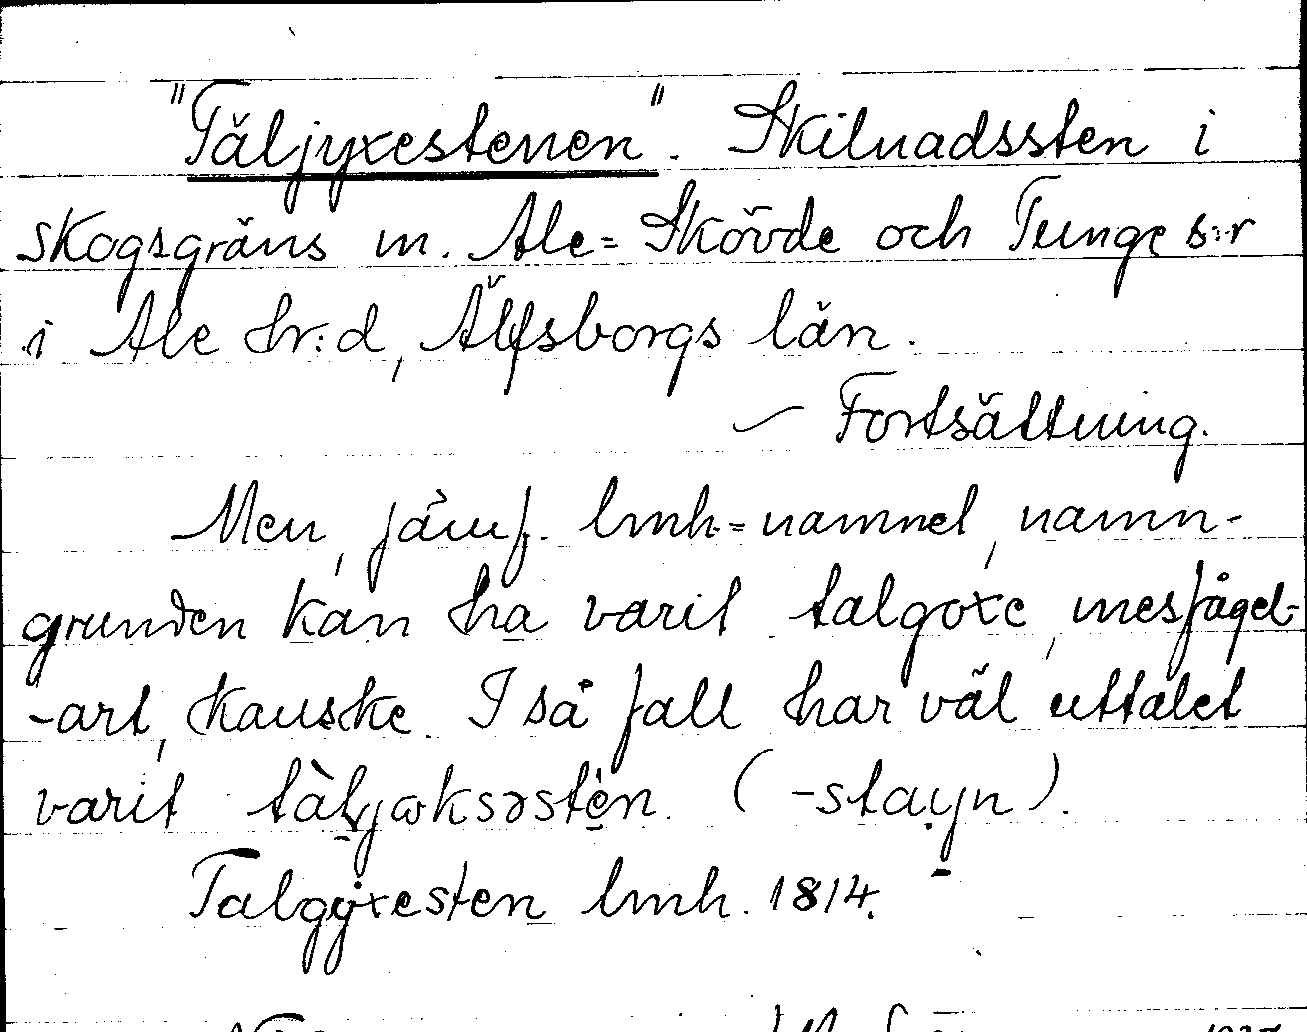 "Täljyxestenen". Skilnadssten i
skogsgräns m. Ale=Skövde och Tunge s:r
i Ale hr:d, Älfsborgs län.
– Fortsättning.
Men, jämf. lmh.=namnet, namn-
grunden kan ha varit talgoxe, mesfågel-
-art, kanske. I så fall har väl uttalet
varit
(-stayn).
Talgyxesten lmh. 1814.